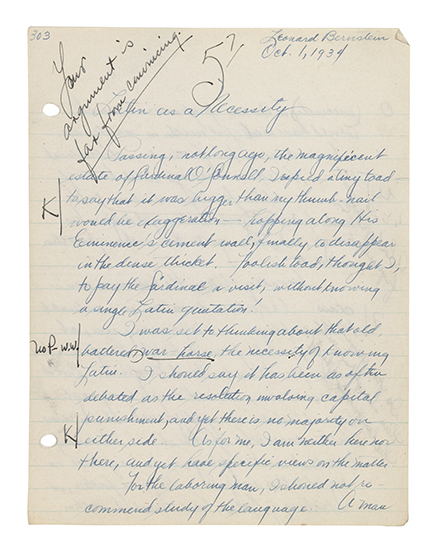 303
Leonard Bernstein
Oct. 1, 1934
Your
argument is
far from convincing.
Latin as a Necessity
Passing, not long ago, the magnificent
estate of Cardinal O'Connell, I espied a tiny toad
K/
to say that it was bigger than my thumb-nail
would be exaggeration — hopping along His
Eminence's cement wall, finally to disappear
in the dense thicket. Foolish toad, thought I,
to pay the Cardinal a visit, without knowing
a single Latin quotation!
I was set to thinking about that old,
no P- ww/
battered war horse the necessity of knowing
Latin. I should say it has been as often
debated as the resolution involving capital
punishment, and yet there is no majority on
K/
either side. As for me, I am neither here nor
there, and yet have specific views on the matter.
For the laboring man, I should not re-
commend study of the language. A man